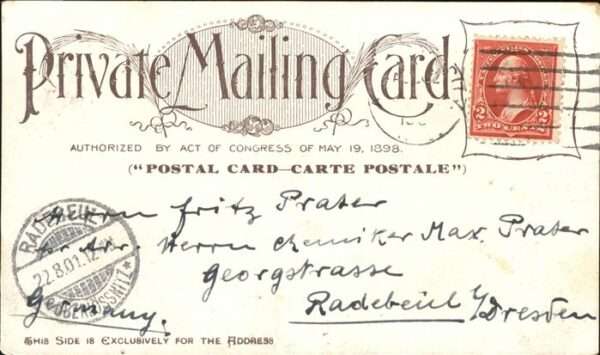 Private Mailing Card
AUTHORIZED BY ACT OF CONGRESS OF MAY 19, 1898.
("POSTAL CARD–CARTE POSTALE")
2
2
TWO CENTS
RADEBEUL
22.8.01.12
OBERLÖSSNITZ
Herrn Fritz Prater
pr Adr. Herrn Chemiker Max Prater
Georgstrasse
Germany. Radebeul b/Dresden
THIS SIDE IS EXCLUSIVELY FOR THE ADDRESS